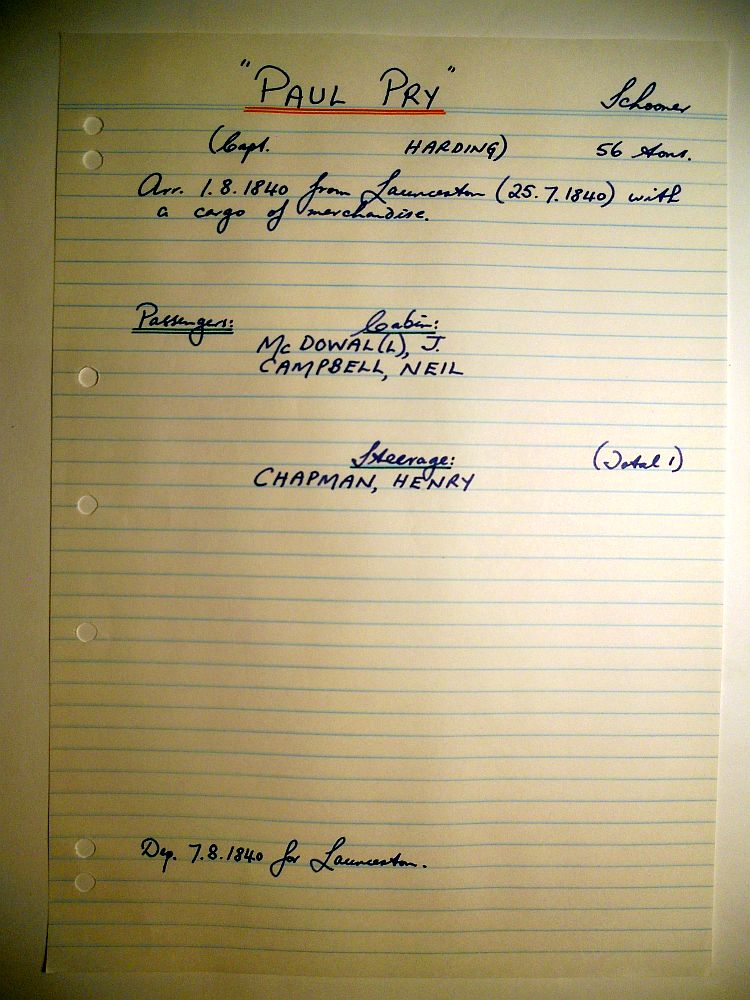 "PAUL PRY" Schooner
(Capt. HARDING) 56 tons.
Arr. 1.8.1840 from Launceston (25.7.1840) with
a cargo of merchandise.
Passengers: Cabin:
McDOWAL(L), J.
CAMPBELL, NEIL
Steerage: (Total 1)
CHAPMAN, HENRY
Dep. 7.8.1840 for Launceston.